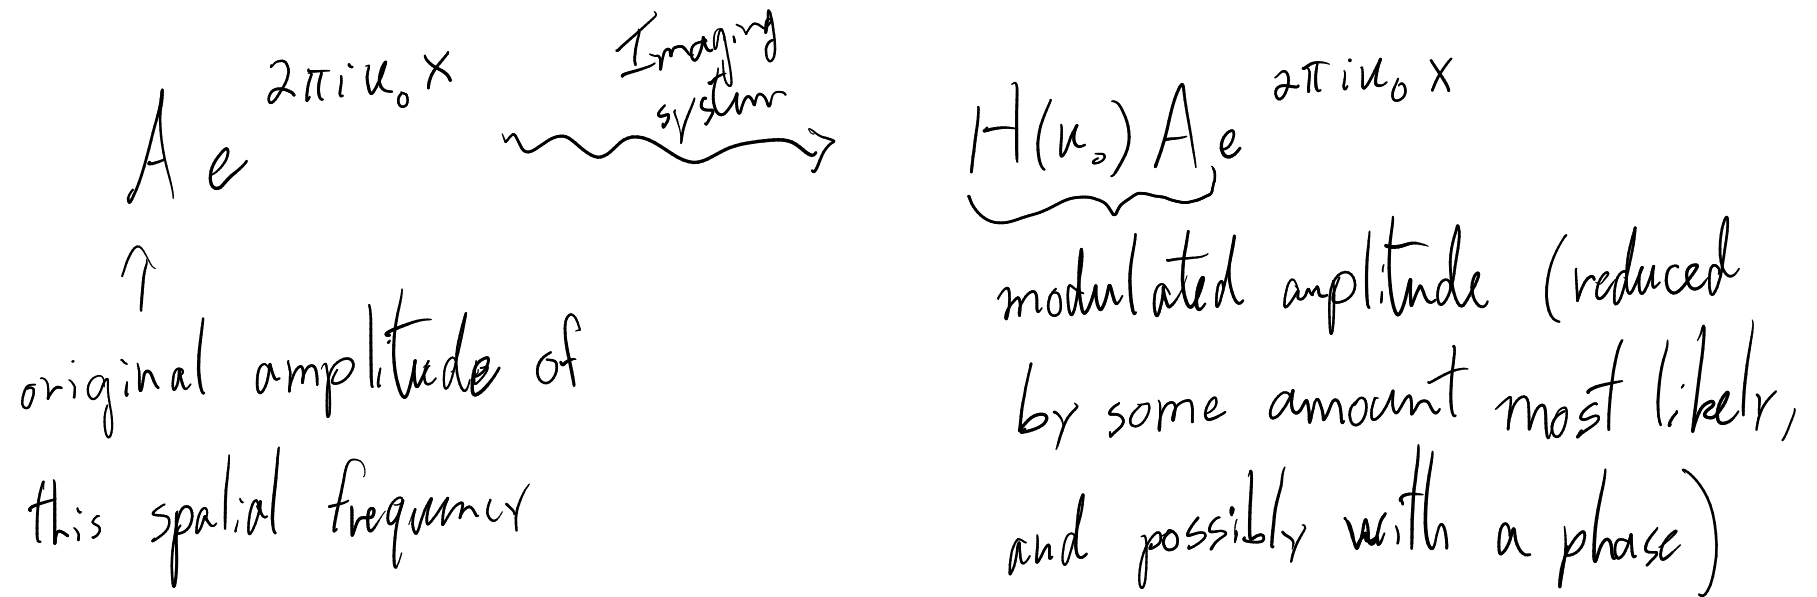 A e^{2πiu₀x}
Imaging
system
H(u₀) A e^{2πiu₀x}
↑
original amplitude of
this spatial frequency
modulated amplitude (reduced
by some amount most likely,
and possibly with a phase)